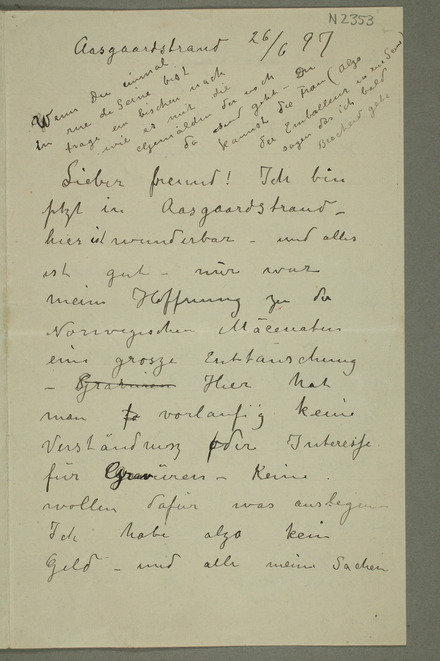 N 2353
Aasgaardstrand 26/6 97
Wenn Du einmal
in rue de Seine bist
frage ein bischen nach
wie es mit die
gemälden die noch
da sind geht – Du
kannst die Frau (algo
der Emballeur in rue de Seine)
sagen das ich bald
Bescheid gebe
Lieber freund! Ich bin
jtzt in Aasgaardstrand –
hier ist wunderbar – und alles
ist gut – nur war
meine Hoffnung zu die
Norwegischen Mäcenaten
eine grosze Entstäuschung
– Hier hat
man vorlaufig keine
Verständnisz oder Interesse
für Gravüren – Keine
wollen dafür was auslegen –
Ich habe algo kein
Geld – und alle meine Sachen